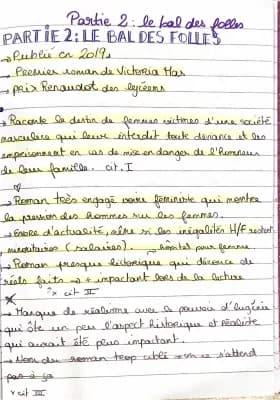 Partie 2 : le bal des folles
PARTIE 2 : LE BAL DES FOLLES
→ Publié en 2019
→ Premier roman de Victoria Mas
→ prix Renaudot des lycéens
→ Raconte le destin de femmes victimes d'une société
masculine qui leur interdit toute déviance et les
emprisonnent en cas de mise en danger de l'honneur
de leur famille. cit. I
→ Roman très engagé voire féministe qui montre
la pression des hommes sur les femmes.
→ Encore d'actualité, même si les inégalités H/F restent
minoritaires (salaires). hôpital pour femme
→ Roman presque historique qui dénonce de
réels faits → + impactant lors de la lecture
cit II
→ Manque de réalisme avec le pouvoir d'Eugénie
qui ôte un peu l'aspect historique et réaliste
qui aurait été plus important.
→ Nom du roman trop ciblé → on s'attend
pas à ça
cit III